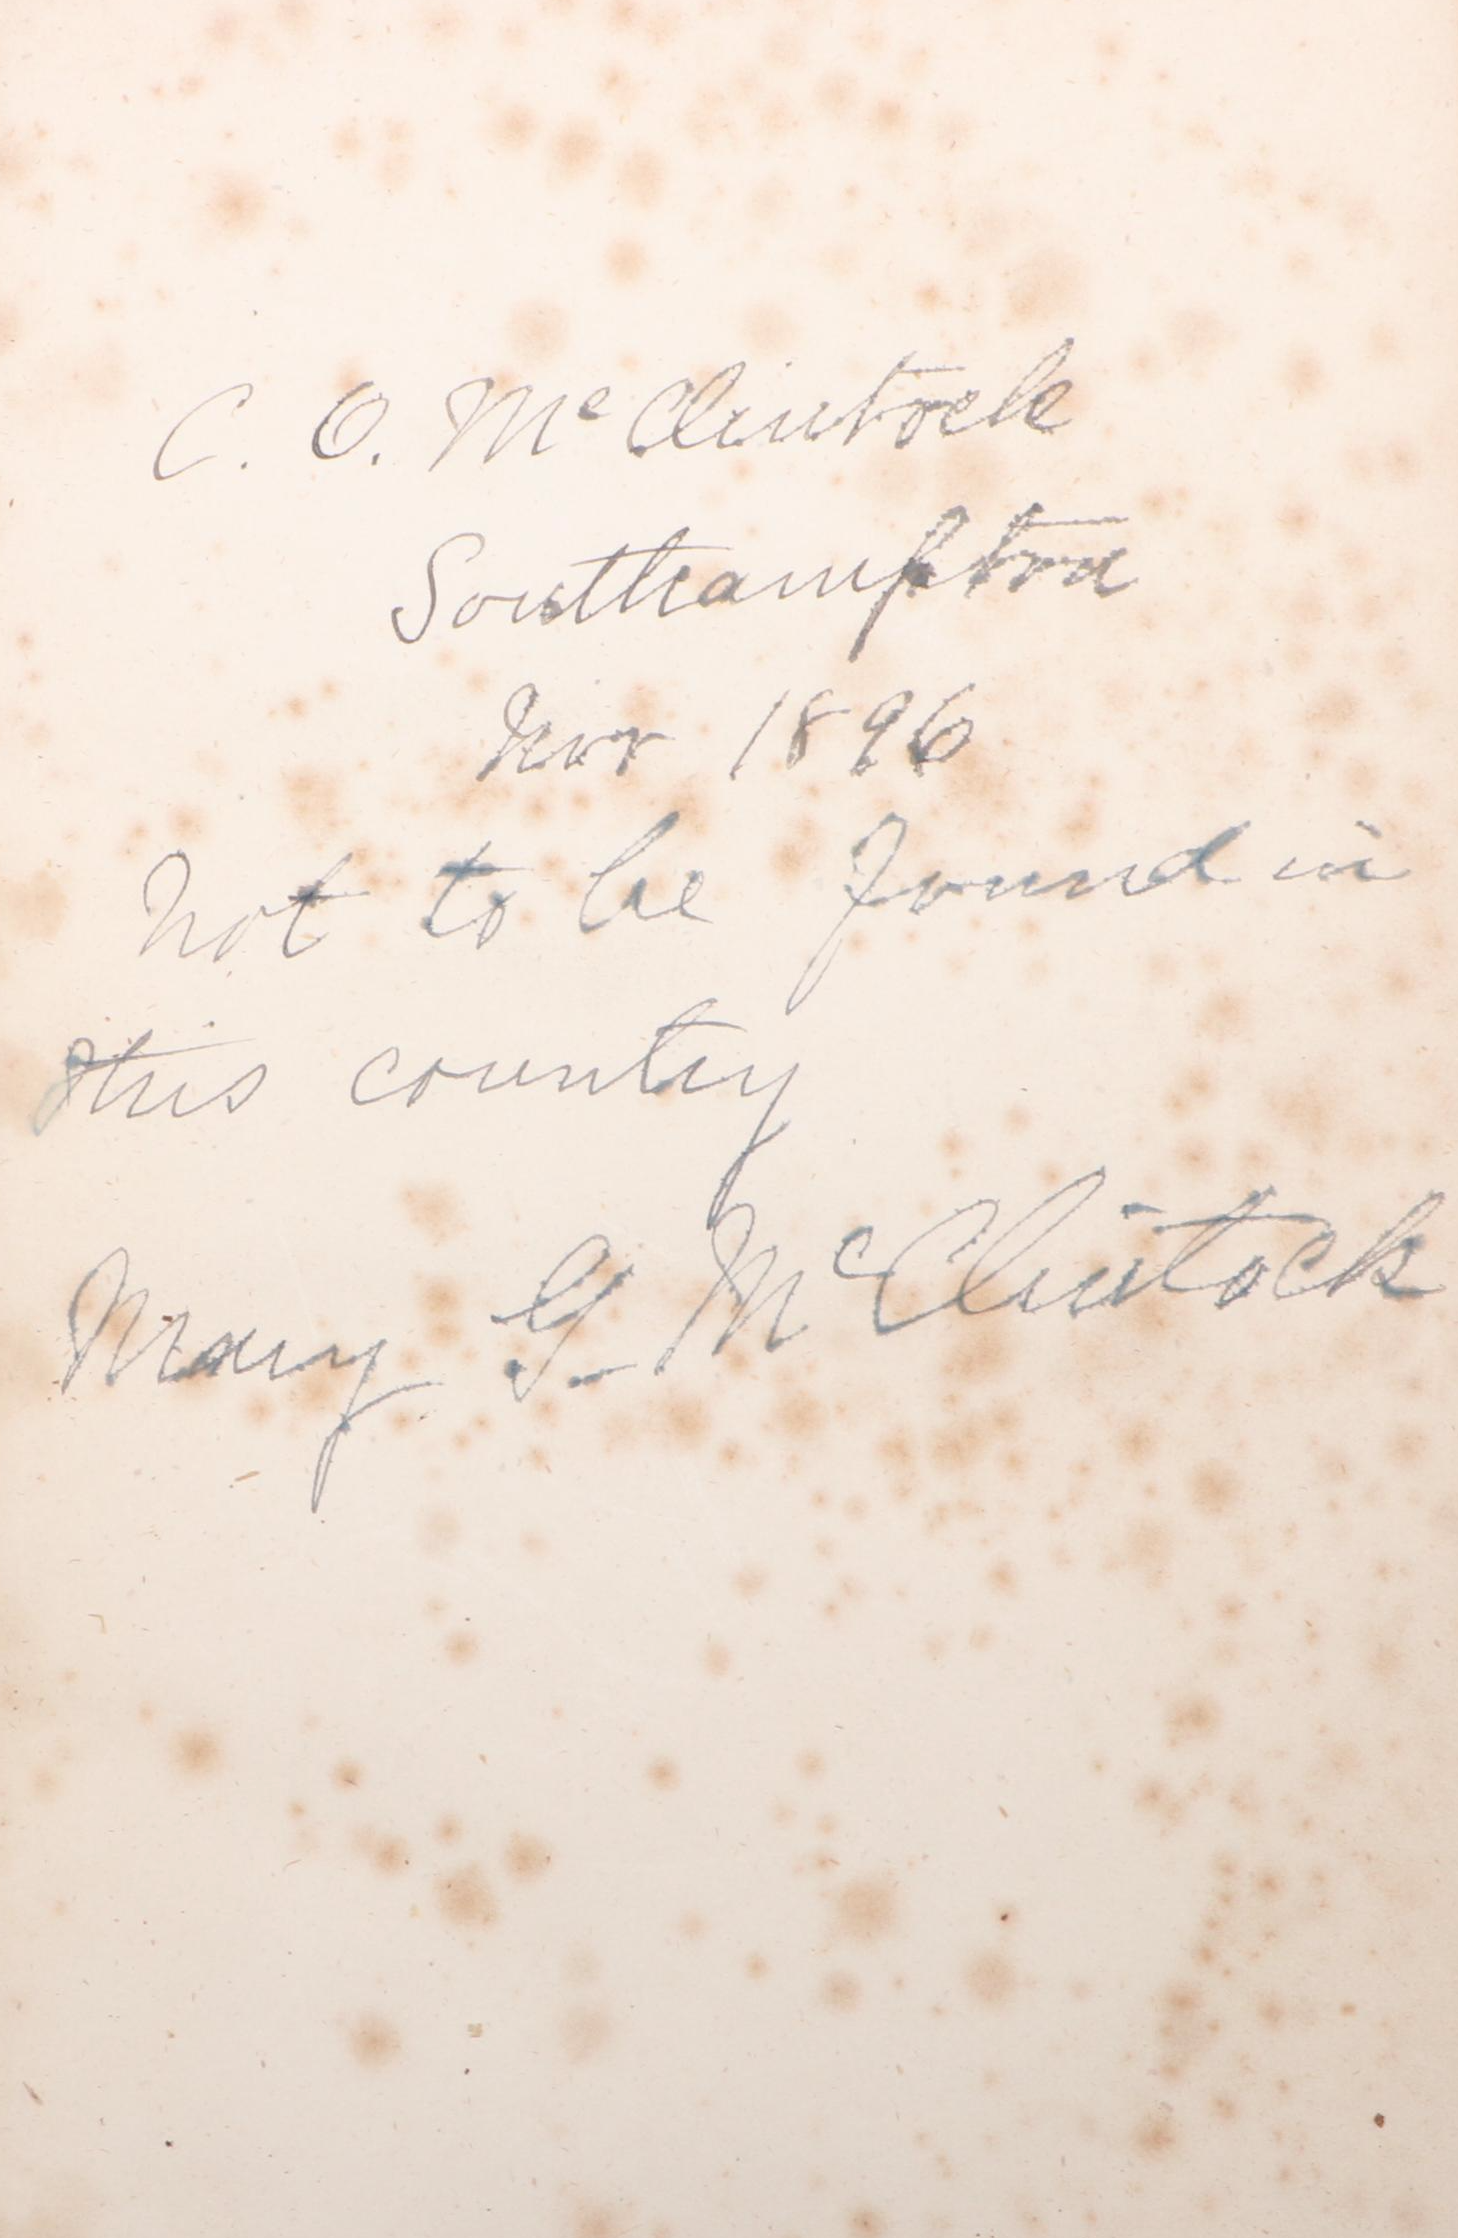 C. O. McClintock
Southampton
Nov 1896
Not to be found in
this country
Mary G. McClintock